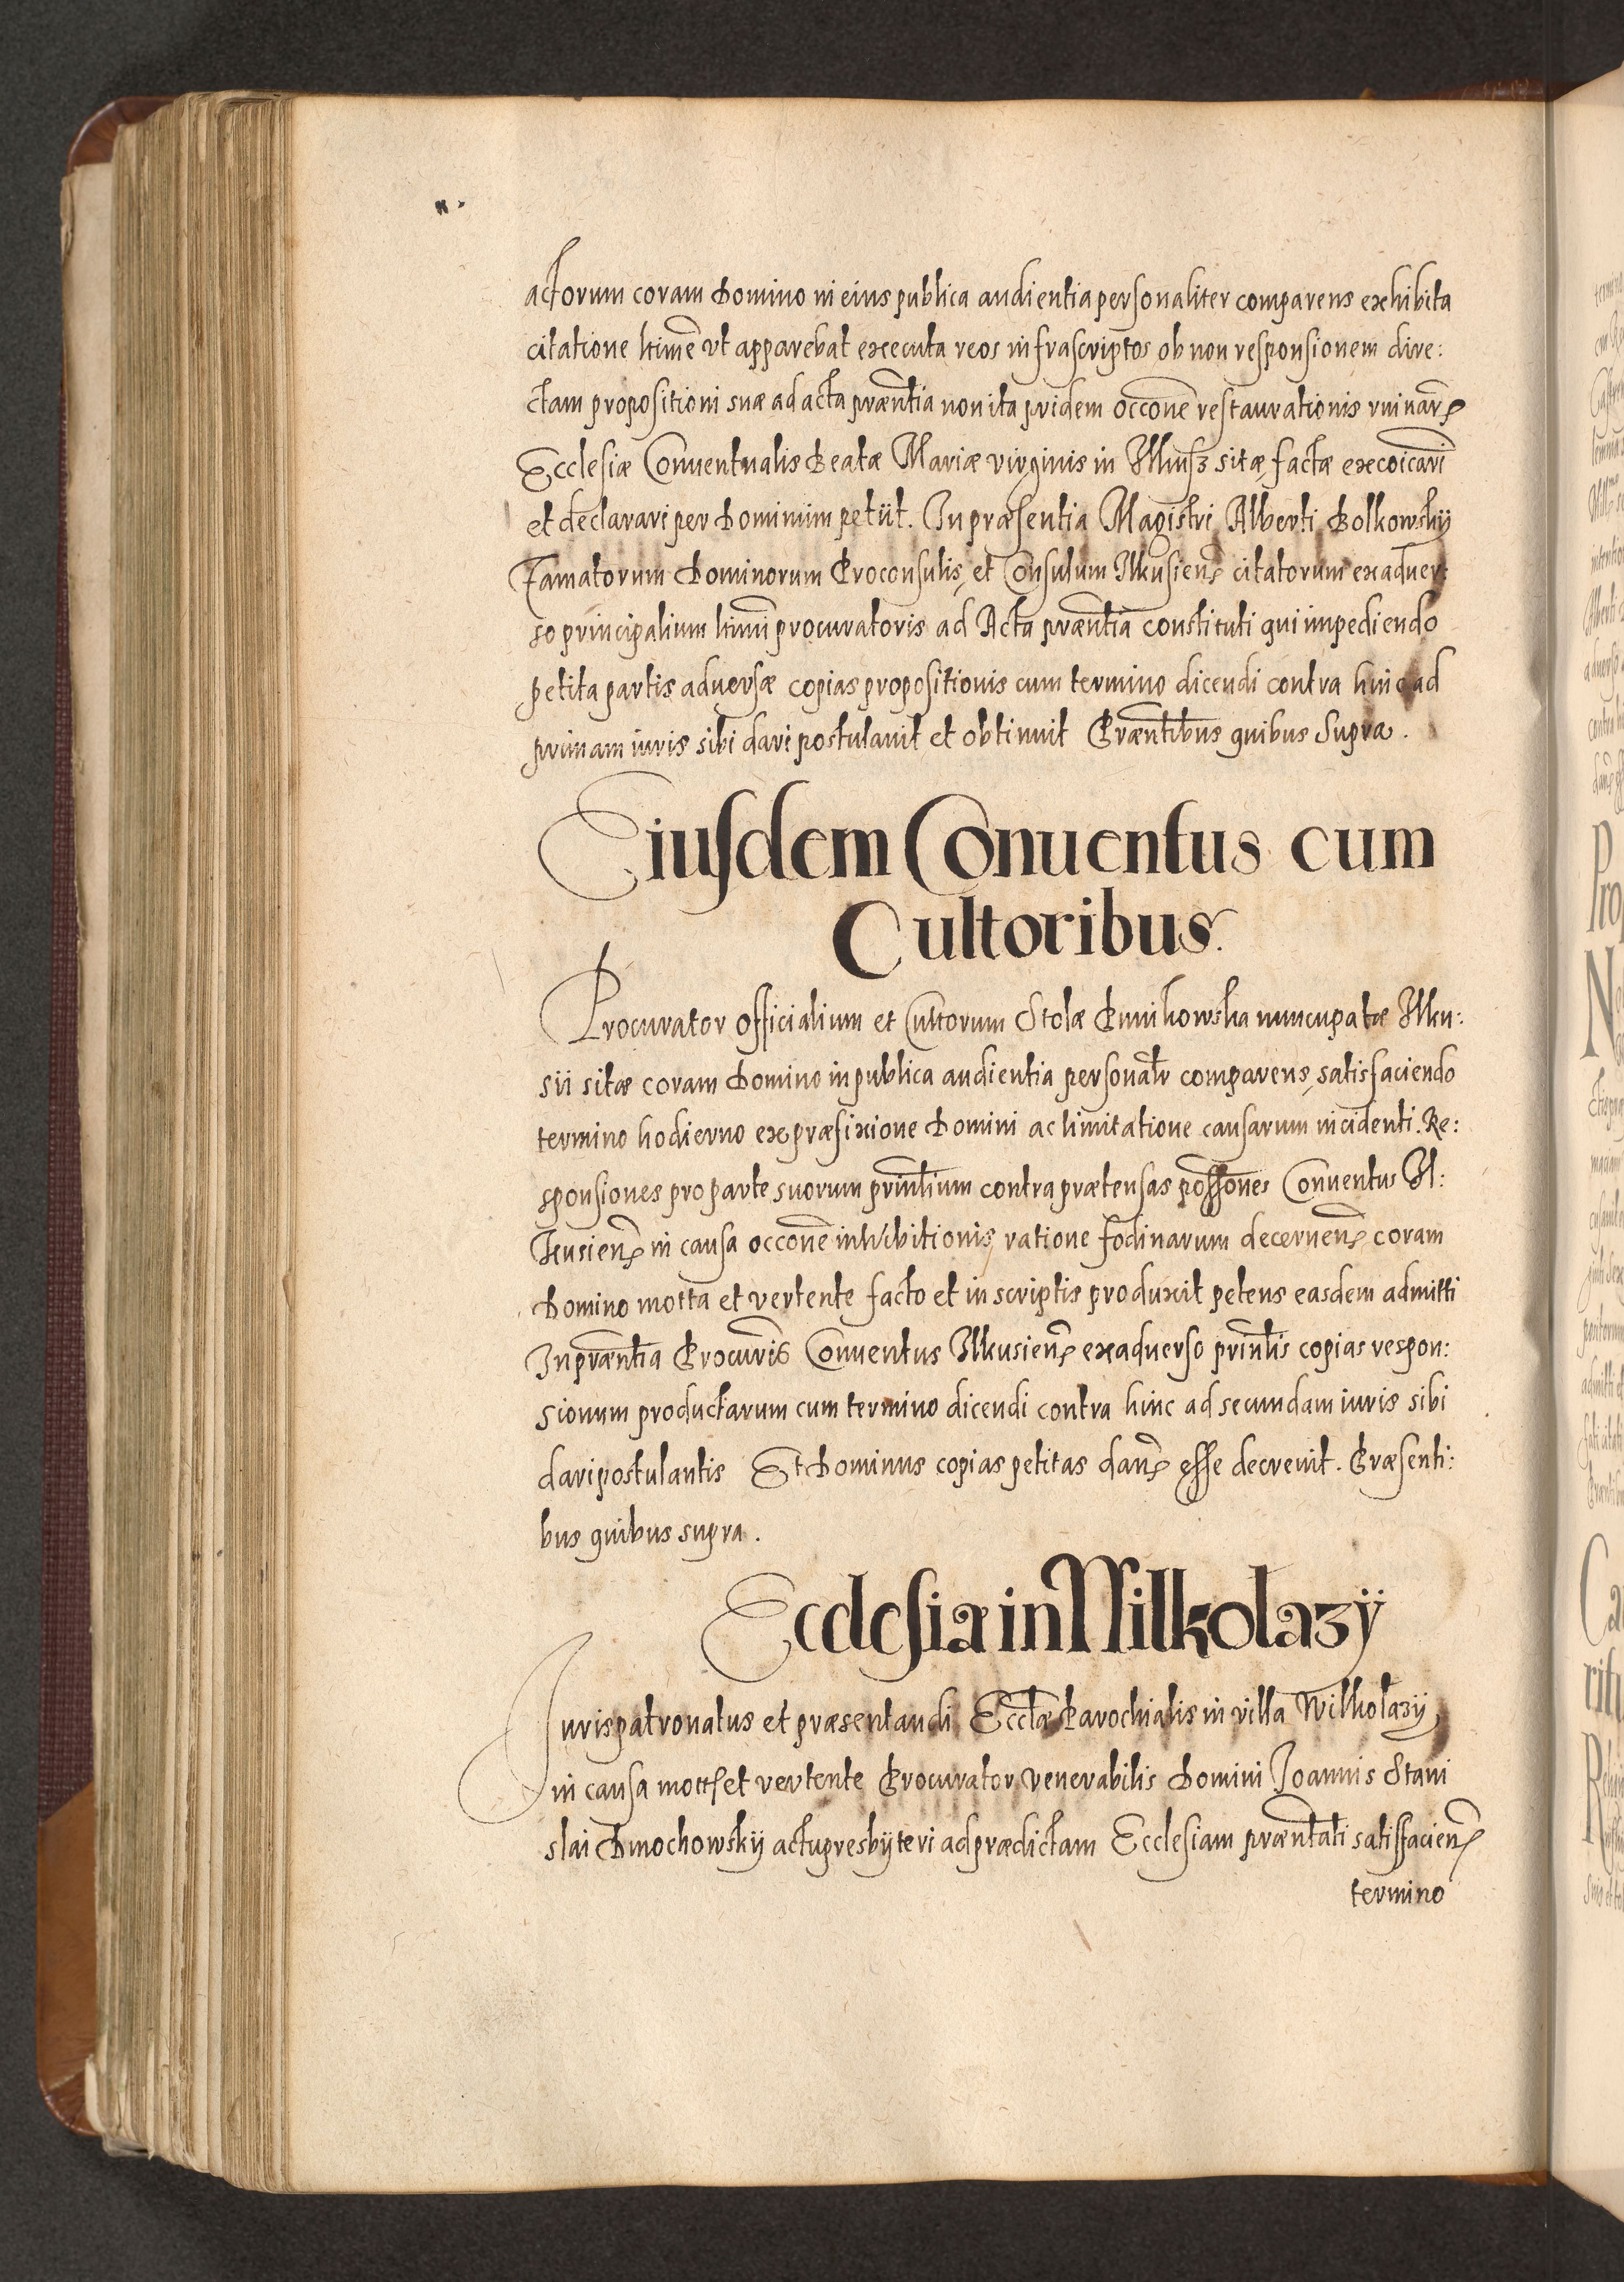 actorum coram Domino in eius publica audientia personaliter comparens exhibita
citatione ltimē vt apparebat executa reos infrascriptos ob non responsionem dire:
ctam propositioni suæ ad acta præntia non ita pridem occōne restaurationis ruinar
Ecclesiæ Conuentualis Beatæ Mariæ virginis in Ilkusz sitæ factæ excōicari
et declarari per Dominum petiit. In præsentia Magistri Alberti Bolkowskÿ
Famatorum Dominorum Proconsulis, et Consulum Ilkusien citatorum ex aduer:
so principalium ltimi procuratoris ad Acta præntia constituti qui impediendo
petita partis aduersæ copias propositionis cum termino dicendi contra hinc ad
primam iuris sibi dari postulauit et obtinuit Præntibus quibus Supra.
Eiusdem Conuentus cum
Cultoribus.
Procurator officialium et Cultorum Stolæ Ponikowska nuncupatæ Ilku:
sii sitæ coram Domino in publica audientia personalr comparens, satisfaciendo
termino hodierno ex præfixione Domini ac limitatione causarum incidenti. Re:
sponsiones pro parte suorum prinlium contra prætensas possones Conuentus Il:
kusien in causa occōne inhibitionis ratione fodinarum decernen coram
Domino motta et vertente facto et in scriptis produxit petens easdem admitti
In præntia Procuris Conuentus Ilkusien ex aduerso prinlis copias respon:
sionum productarum cum termino dicendi contra hinc ad secundam iuris sibi
dari postulantis Et Dominus copias petitas dan esse decreuit. Præsenti:
bus quibus supra.
Ecclesiæ in Wilkolazÿ
Iurispatronatus et præsentandi Ecclæ Parochialis in villa Wilkolazÿ,
in causa motta et vertente Procurator venerabilis Domini Joannis Stani
slai Dmochowskÿ actu presbÿteri ad prædictam Ecclesiam præntati satisfacien
termino